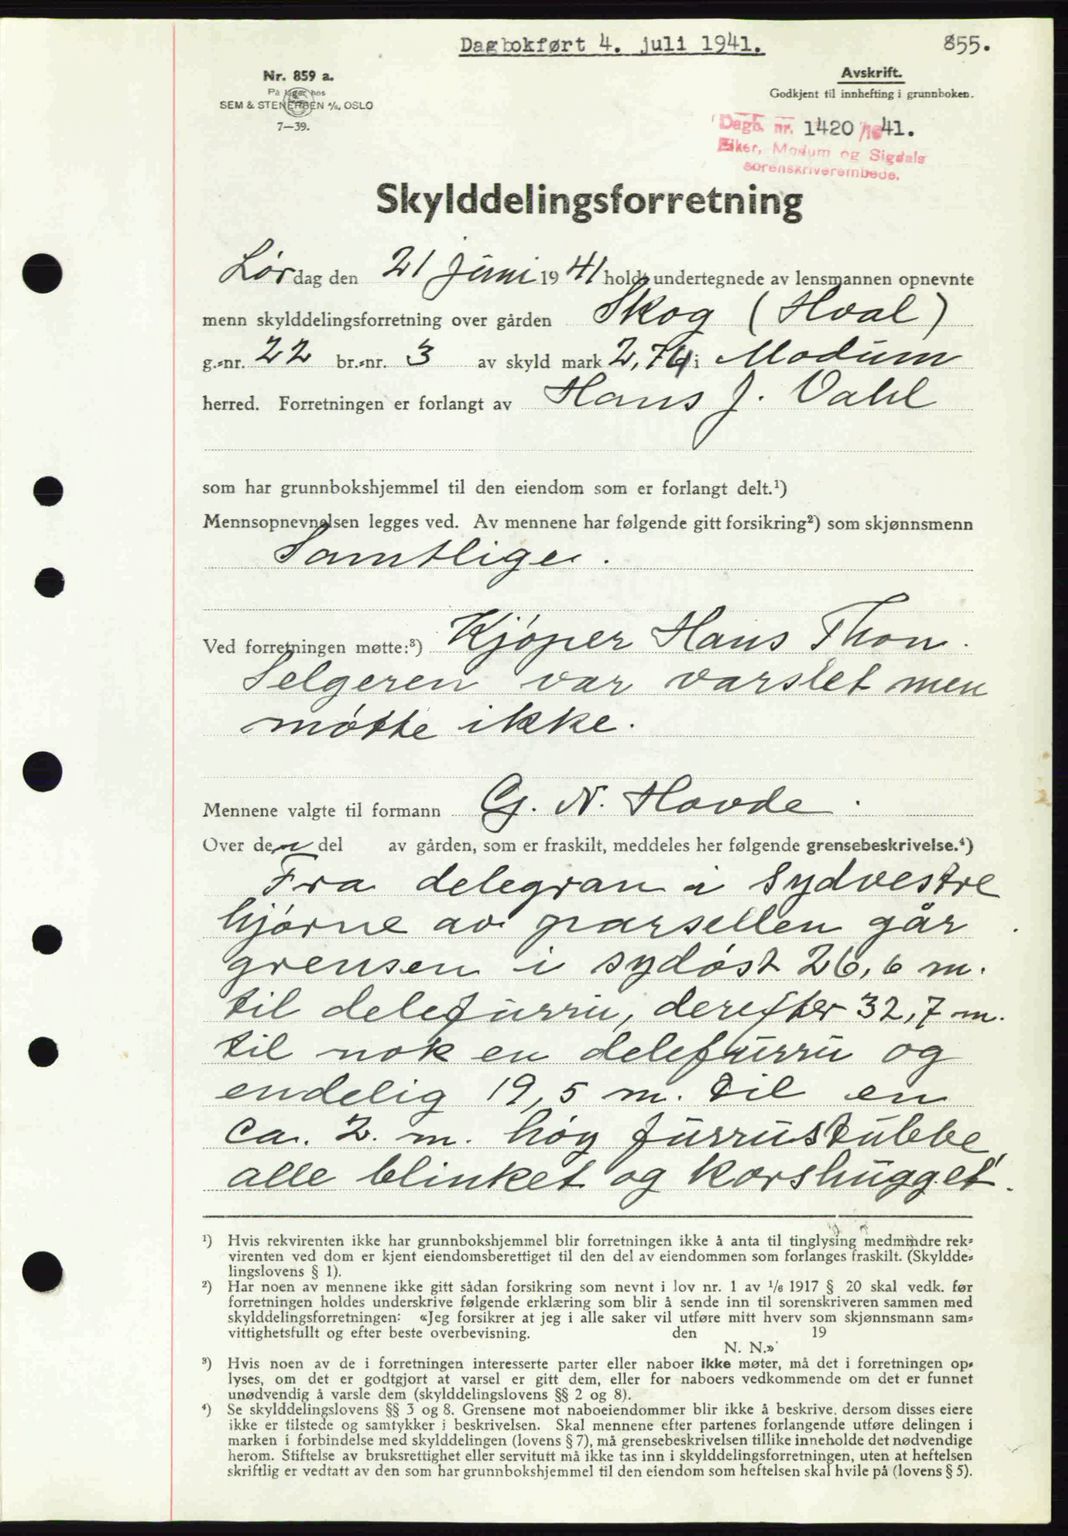 Dagbokført 4. juli 1941.
855.
Nr. 859 a.
På lager hos
SEM & STENERSEN A/S, OSLO
7—39.
Avskrift.
Godkjent til innhefting i grunnboken.
Dagb. nr. 1420/1941.
Eiker, Modum og Sigdals
sorenskriverembede.
Skylddelingsforretning
Lørdag den 21 juni 1941 holdt undertegnede av lensmannen opnevnte
menn skylddelingsforretning over gården Skog (Hval)
g.-nr. 22 br.-nr. 3 av skyld mark 2,74 i Modum
herred. Forretningen er forlangt av Hans J. Vahl
som har grunnbokshjemmel til den eiendom som er forlangt delt.¹)
Mennsopnevnelsen legges ved. Av mennene har følgende gitt forsikring²) som skjønnsmenn
Samtlige.
Ved forretningen møtte:³) Kjøper Hans Thon.
Selgeren var varslet men
møtte ikke.
Mennene valgte til formann G. N. Hovde.
Over den del av gården, som er fraskilt, meddeles her følgende grensebeskrivelse.⁴)
Fra delegran i Sydvestre
hjørne av parsellen går
grensen i sydøst 26,6 m.
til delefurru, derefter 32,7 m.
til nok en delefurru og
endelig 19,5 m. til en
ca. 2. m. høy furrustubbe
alle blinket og korshugget.
¹) Hvis rekvirenten ikke har grunnbokshjemmel blir forretningen ikke å anta til tinglysing medmindre rek-
virenten ved dom er kjent eiendomsberettiget til den del av eiendommen som forlanges fraskilt. (Skyldde-
lingslovens § 1).
²) Har noen av mennene ikke gitt sådan forsikring som nevnt i lov nr. 1 av 1/6 1917 § 20 skal vedk. før
forretningen holdes underskrive følgende erklæring som blir å sende inn til sorenskriveren sammen med
skylddelingsforretningen: «Jeg forsikrer at jeg i alle saker vil utføre mitt hverv som skjønnsmann sam-
vittighetsfullt og efter beste overbevisning. den 19
N. N.»
³) Hvis noen av de i forretningen interesserte parter eller naboer ikke møter, må det i forretningen op-
lyses, om det er godtgjort at varsel er gitt dem, eller for naboers vedkommende om det er funnet
unødvendig å varsle dem (skylddelingslovens §§ 2 og 8).
⁴) Se skylddelingslovens §§ 3 og 8. Grensene mot naboeiendommer blir ikke å beskrive, dersom disses eiere
ikke er tilstede og samtykker i beskrivelsen. Skal mennene efter partenes forlangende utføre delingen i
marken i forbindelse med skylddelingen (lovens § 7), må grensebeskrivelsen tillike inneholde det nødvendige
herom. Stiftelse av bruksrettighet eller servitutt må ikke tas inn i skylddelingsforretningen, uten at heftelsen
skriftlig er vedtatt av den som har grunnbokshjemmel til den eiendom som heftelsen skal hvile på (lovens § 5).